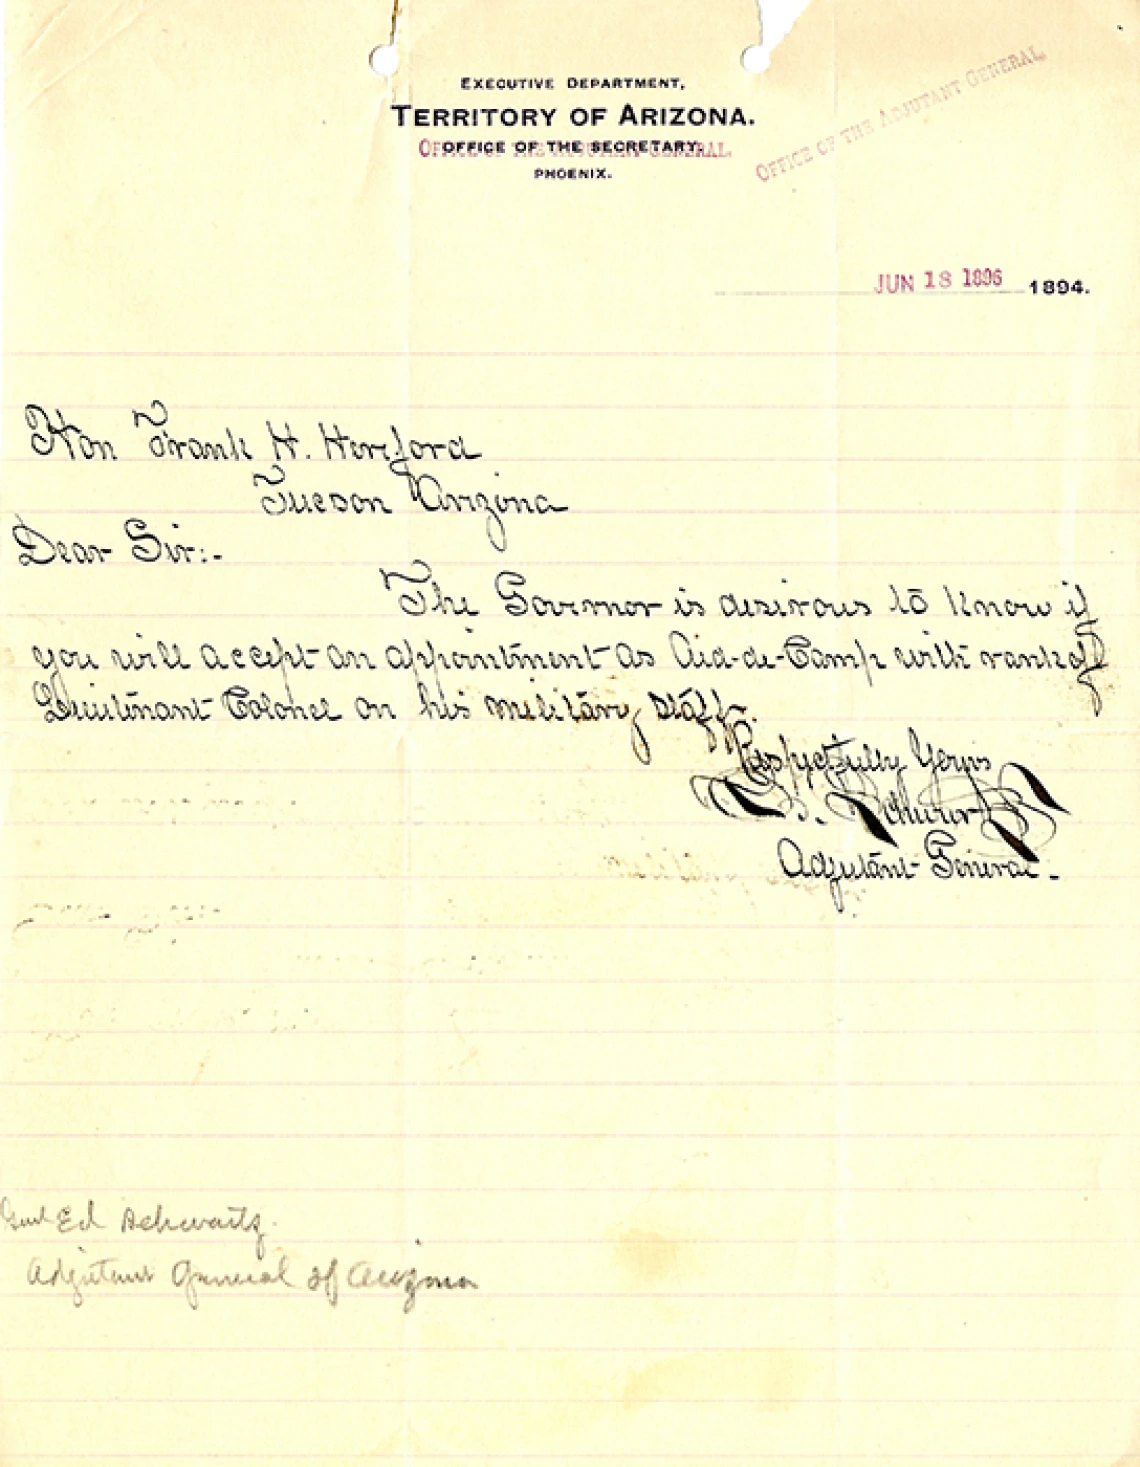 EXECUTIVE DEPARTMENT,
TERRITORY OF ARIZONA.
OFFICE OF THE SECRETARY,
OFFICE OF THE ADJUTANT GENERAL.
PHOENIX.
OFFICE OF THE ADJUTANT GENERAL.
JUN 18 1896 1894.
Hon Frank H. Hereford
Tucson Arizona
Dear Sir:-
The Governor is desirous to know if
you will accept an appointment as Aid-de-Camp with rank of
Lieutenant Colonel on his military staff.
Respectfully Yours
Ed. Schwartz
Adjutant General.
Genl Ed Schwartz.
Adjutant General of Arizona